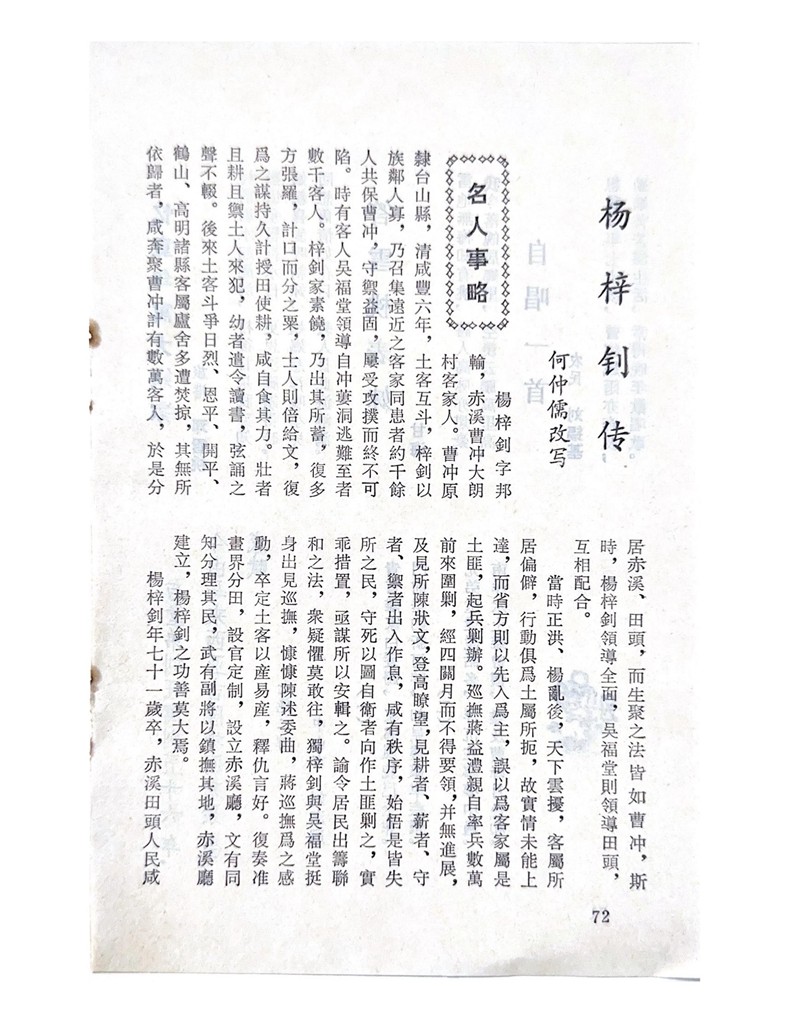 杨梓钊传
何仲儒改写
名人事略
楊梓釗字邦
翰，赤溪曹冲大朗
村客家人。曹冲原
隸台山縣，清咸豐六年，土客互斗，梓釗以
族鄰人寡，乃召集遠近之客家同患者約千餘
人共保曹冲，守禦益固，屢受攻撲而終不可
陷。時有客人吳福堂領導自冲蔞洞逃難至者
數千客人。梓釗家素饒，乃出其所蓄，復多
方張羅，計口而分之粟，士人則倍給文，復
爲之謀持久計授田使耕，咸自食其力。壯者
且耕且禦土人來犯，幼者遣令讀書，弦誦之
聲不輟。後來土客斗爭日烈、恩平、開平、
鶴山、高明諸縣客屬廬舍多遭焚掠，其無所
依歸者，咸奔聚曹冲計有數萬客人，於是分
居赤溪、田頭，而生聚之法皆如曹冲，斯
時，楊梓釗領導全面，吳福堂則領導田頭，
互相配合。
當時正洪、楊亂後，天下雲擾，客屬所
居偏僻，行動俱爲土屬所扼，故實情未能上
達，而省方則以先入爲主，誤以爲客家屬是
土匪，起兵剿辦。廵撫蔣益澧親自率兵數萬
前來圍剿，經四閱月而不得要領，并無進展，
及見所陳狀文，登高瞭望，見耕者、薪者、守
者、禦者出入作息，咸有秩序，始悟是皆失
所之民，守死以圖自衛者向作土匪剿之，實
乖措置，亟謀所以安輯之。諭令居民出籌聯
和之法，衆疑懼莫敢往，獨梓釗與吳福堂挺
身出見巡撫，慷慷陳述委曲，蔣巡撫爲之感
動，卒定土客以産易産，釋仇言好。復奏准
畫界分田，設官定制，設立赤溪廳，文有同
知分理其民，武有副將以鎮撫其地，赤溪廳
建立，楊梓釗之功善莫大焉。
楊梓釗年七十一歲卒，赤溪田頭人民咸
72